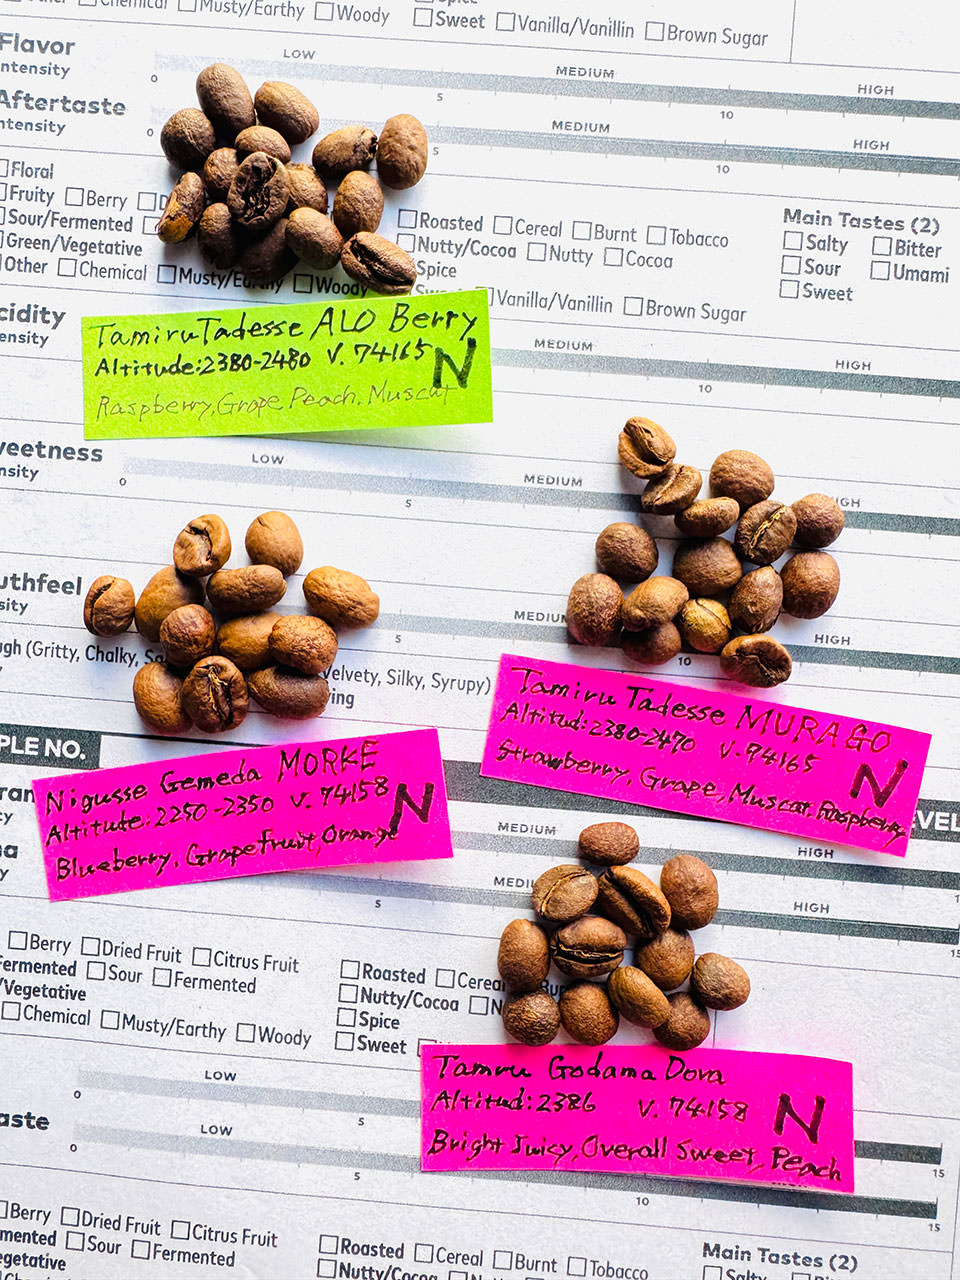 Chemical Musty/Earthy Woody
Sweet Vanilla/Vanillin Brown Sugar
Flavor
LOW MEDIUM HIGH
0 5 10
Aftertaste
MEDIUM HIGH
0 5 10
Floral
Fruity Berry
Sour/Fermented
Green/Vegetative
Other Chemical Musty/Earthy Woody
Roasted Cereal Burnt Tobacco
Nutty/Cocoa Nutty Cocoa
Spice
Sweet Vanilla/Vanillin Brown Sugar
Main Tastes (2)
Salty Bitter
Sour Umami
Sweet
Tamiru Tadesse ALO Berry
Altitude:2380-2480 V. 74165 N
Raspberry, Grape Peach. Muscat
MEDIUM HIGH
10
LOW MEDIUM
0 5
MEDIUM HIGH
5 10
(Gritty, Chalky,
Velvety, Silky, Syrupy)
Tamiru Tadesse MURAGO
Altitud:2380-2470 V.74165 N
Strawberry, Grape, Muscat, Raspberry
PLE NO.
Nigusse Gemeda MORKE
Altitude:2250-2350 V. 74158 N
Blueberry, Grapefruit, Orange
MEDIUM HIGH
5
HIGH
15
Berry Dried Fruit Citrus Fruit
Fermented Sour Fermented
/Vegetative
Chemical Musty/Earthy Woody
Roasted Cereal
Nutty/Cocoa
Spice
Sweet
Tamru Godama Dova
Altitud:2386 V. 74158 N
Bright Juicy, Overall Sweet, Peach
LOW
0 5
LOW
0 5 10 15
15
Berry Dried Fruit Citrus Fruit
Sour Fermented
Roasted Cereal Burnt Tobacco
Nutty/Cocoa
Main Tastes (2)
Salty